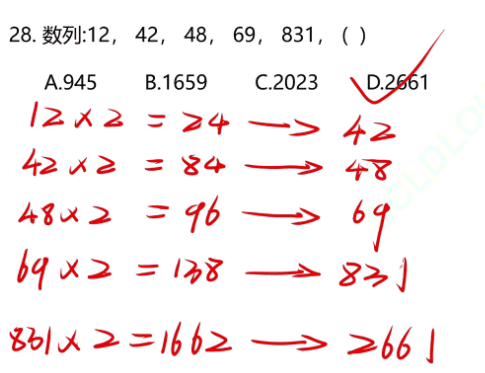 28. 数列:12， 42， 48， 69， 831，( )
A.945 B.1659 C.2023 D.2661
12 × 2 = 24 → 42
42 × 2 = 84 → 48
48 × 2 = 96 → 69
69 × 2 = 138 → 831
831 × 2 = 1662 → 2661